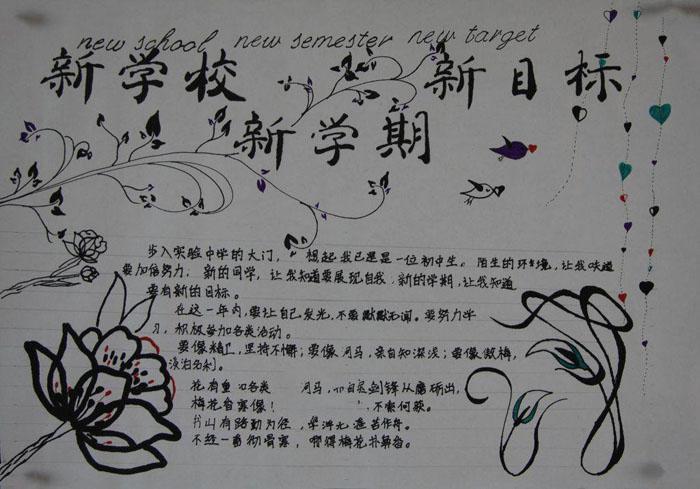 new school new semester new target
新学校 新目标
新学期
步入实验中学的大门, 想起我已是是一位初中生。陌生的环境,让我知道
要加倍努力; 新的同学,让我知道要展现自我;新的学期,让我知道
要有新的目标。
在这一年内,要让自己发光,不要默默无闻。要努力学
习,积极参加各类活动。
要像精卫,坚持不懈;要像河马,亲自知深浅;要像傲梅,
淡泊名利。
花有重 各类 河马, 宝剑锋从磨砺出,
梅花自寒 不 何获。
书山有路勤为径,学海无涯苦作舟。
不经一番彻骨寒, 哪得梅花扑鼻香。